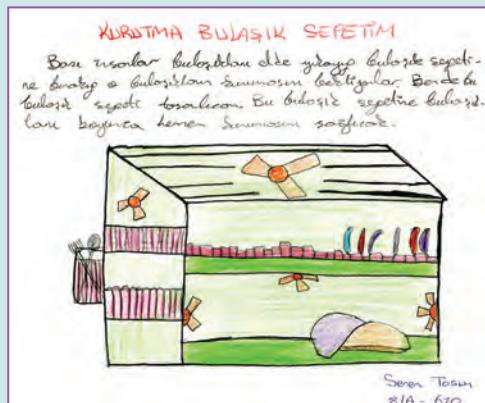 KURUTMA BULAŞIK SEPETİM
Bazı insanlar bulaşıkları elde yıkayıp bulaşık sepeti-
ne bırakıp o bulaşıkların kurumasını bekliyorlar. Bende bu
bulaşık sepeti tasarlıcam. Bu bulaşık sepetine bulaşık-
ları koyunca hemen kurumasını sağlıcak.
Seren Tosun
8/A - 610